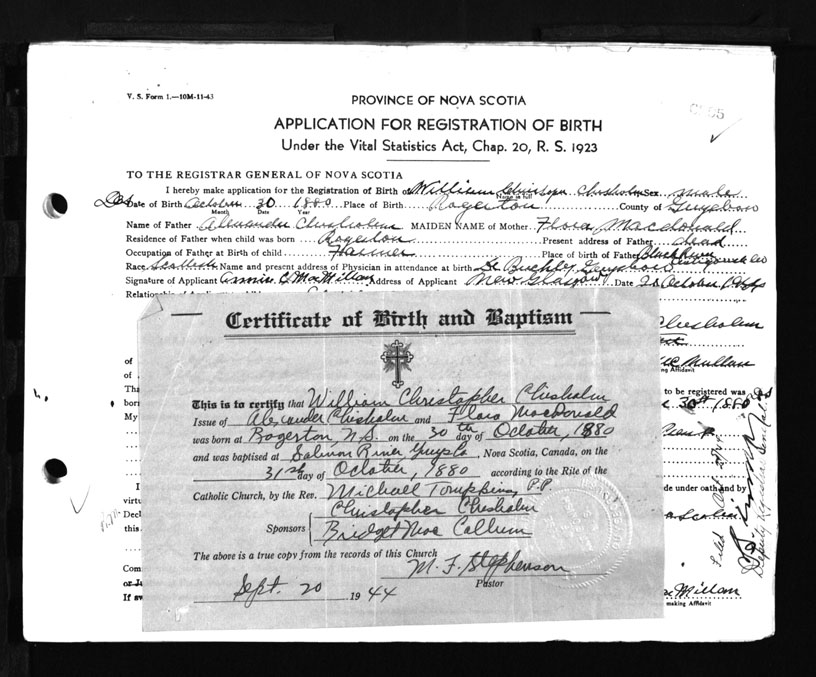 V. S. Form 1.—10M-11-43
PROVINCE OF NOVA SCOTIA
APPLICATION FOR REGISTRATION OF BIRTH
Under the Vital Statistics Act, Chap. 20, R. S. 1923
TO THE REGISTRAR GENERAL OF NOVA SCOTIA
I hereby make application for the Registration of Birth of William Christopher Chisholm Sex male
Name in full
Date of Birth October 30 1880 Place of Birth Rogerton County of Guysboro
Month Date Year
Name of Father Alexander Chisholm MAIDEN NAME of Mother Flora Macdonald
Residence of Father when child was born Rogerton Present address of Father dead
Occupation of Father at Birth of child Farmer Place of birth of Father
Race Scottish Name and present address of Physician in attendance at birth Guysboro
Signature of Applicant Annie C MacMillan Address of Applicant New Glasgow Date October
Chisholm
Certificate of Birth and Baptism
McMillan
ing Affidavit
of
of
This is to certify that William Christopher Chisholm
to be registered was
born
30th 1880
Issue of Alexander Chisholm and Flora MacDonald
My
was born at Bogerton, N.S. on the 30th day of October, 1880
and was baptised at Salmon River Guysbo, Nova Scotia, Canada, on the
31st day of October, 1880 according to the Rite of the
Catholic Church, by the Rev. Michael Tompkins, P.P.
de under oath and by
virtu
Christopher Chisholm
Decl
Sponsors Bridget Mac Callum
this
The above is a true copy from the records of this Church
M. F. Stephenson
Pastor
Com
or Ju
Sept. 20 1944
Millan
If aw
making Affidavit
Filed Oct
Deputy Registrar General